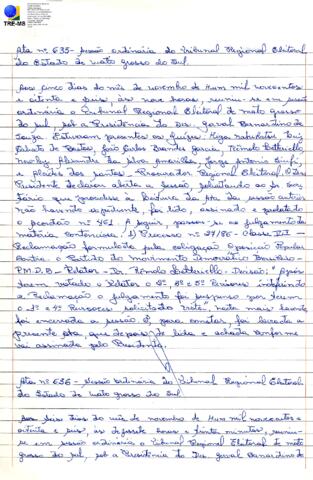 TRE-MS
Ata nº 635 - Sessão ordinária do Tribunal Regional Eleitoral
do Estado de Mato Grosso do Sul.
Aos cinco dias do mês de novembro de Hum mil novecentos
e oitenta e seis, às nove horas, reuniu-se em sessão
ordinária o Tribunal Regional Eleitoral de Mato Grosso
do Sul, sob a Presidência do Des. Gerval Bernardino de
Souza. Estiveram presentes os Juízes, Higa Nabukatsu, Luiz
de Bastos, João Carlos Brandes Garcia, Rômulo Letteriello
Alexandre da Silva Jorge Antonio
e dos Santos - Procurador Regional Eleitoral. O Des.
Presidente declarou aberta a sessão, solicitando ao Sr. Secre-
tário que procedesse a leitura da Ata da sessão anterior
não havendo foi lido, assinado e
o acórdão nº 451. A seguir, passou-se ao julgamento da
matéria 1) Processo nº 27/86 - Classe
Reclamação formulada pela coligação Oposição Popular
contra o Partido do Movimento Democrático Brasileiro -
P.M.D.B - Relator - Dr. Rômulo Letteriello. Decisão: "Após
terem votado o Relator o 2º, 4º e 5º indeferindo
a Reclamação o julgamento foi suspenso por terem
o 1º e 3º solicitado vista, nesta mesma
foi encerrada a sessão. E, para constar, foi lavrada a
presente Ata, que depois de lida e achada conforme
vai assinada pelo Presidente.
Ata nº 636 - Sessão ordinária do Tribunal Regional Eleitoral
do Estado de Mato Grosso do Sul
Aos seis dias do mês de novembro de Hum mil novecentos e
oitenta e seis, às dezessete horas e trinta minutos, reuniu-
se em sessão ordinária o Tribunal Regional Eleitoral de Mato
Grosso do Sul, sob a Presidência do Des. Gerval Bernardino de